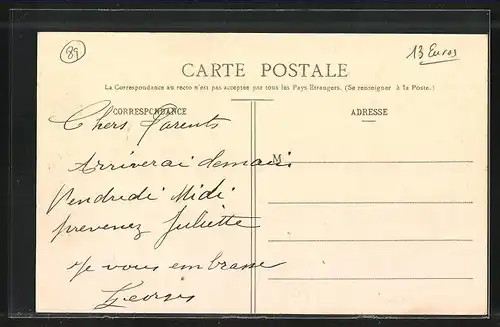 89
13 Euros
CARTE POSTALE
La Correspondance au recto n'est pas acceptée par tous les Pays Etrangers. (Se renseigner à la Poste.)
CORRESPONDANCE
ADRESSE
Chers Parents
Arriverai demain
M
Vendredi Midi
prevenez Juliette
Je vous embrasse
Georges